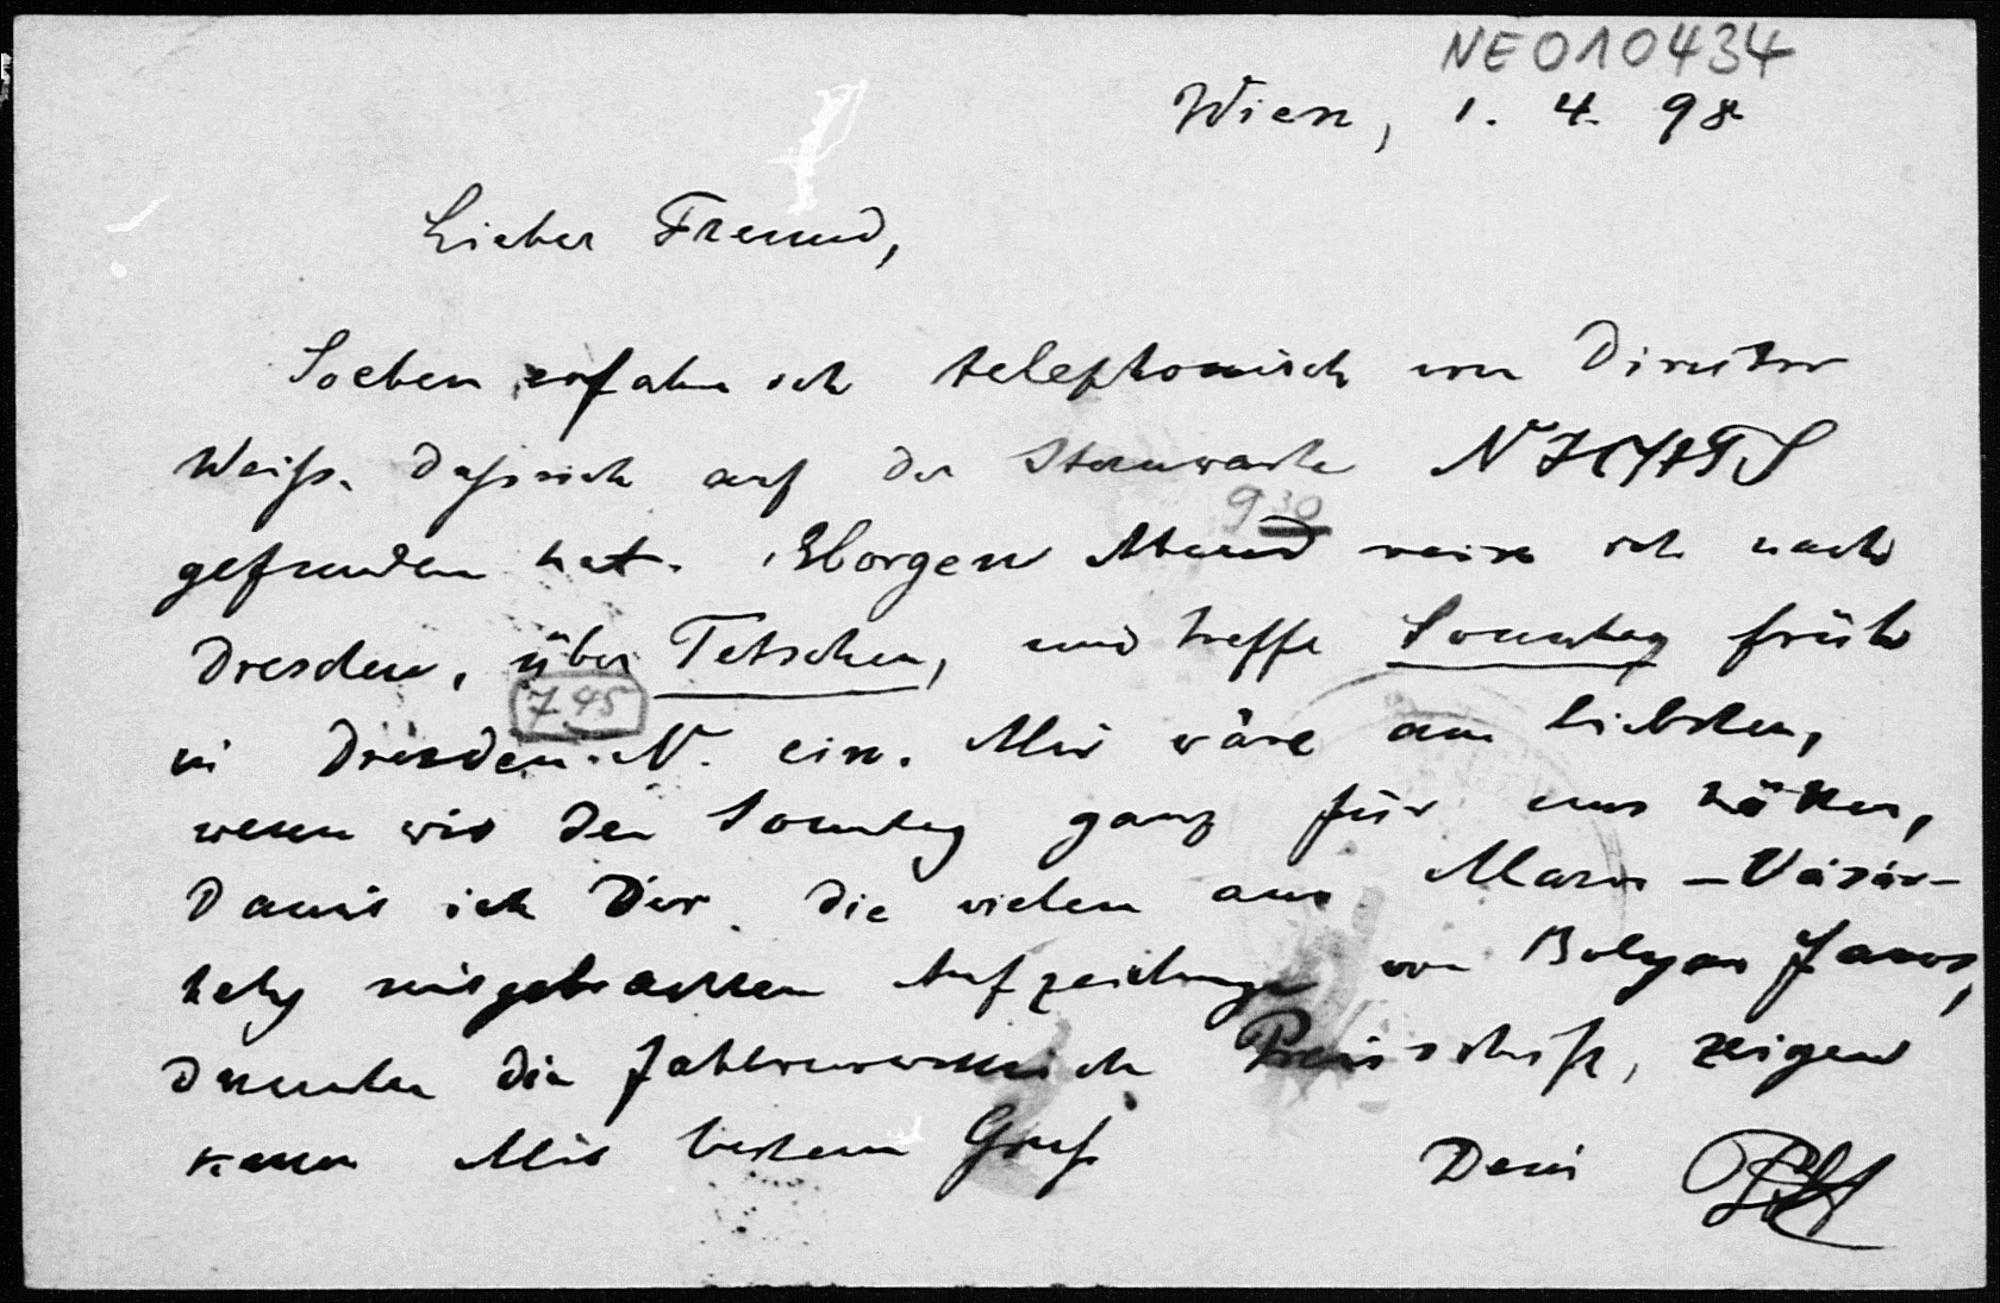 NE010434
Wien, 1. 4. 98
Lieber Freund,
Soeben erfahre ich telephonisch von Director
Weiss, dass sich auf der Sternwarte NICHTS
930
gefunden hat. Morgen Abend reise ich nach
Dresden, über Tetschen, und treffe Sonntag früh
745
in Dresden-N. ein. Mir wäre am liebsten,
wenn wir den Sonntag ganz für uns hätten,
damit ich Dir die vielen aus Maros-Vásár-
hely mitgebrachten Aufzeichnungen von Bolyai János,
darunter die Preisschrift, zeigen
kann Mit bestem Gruß
Dein